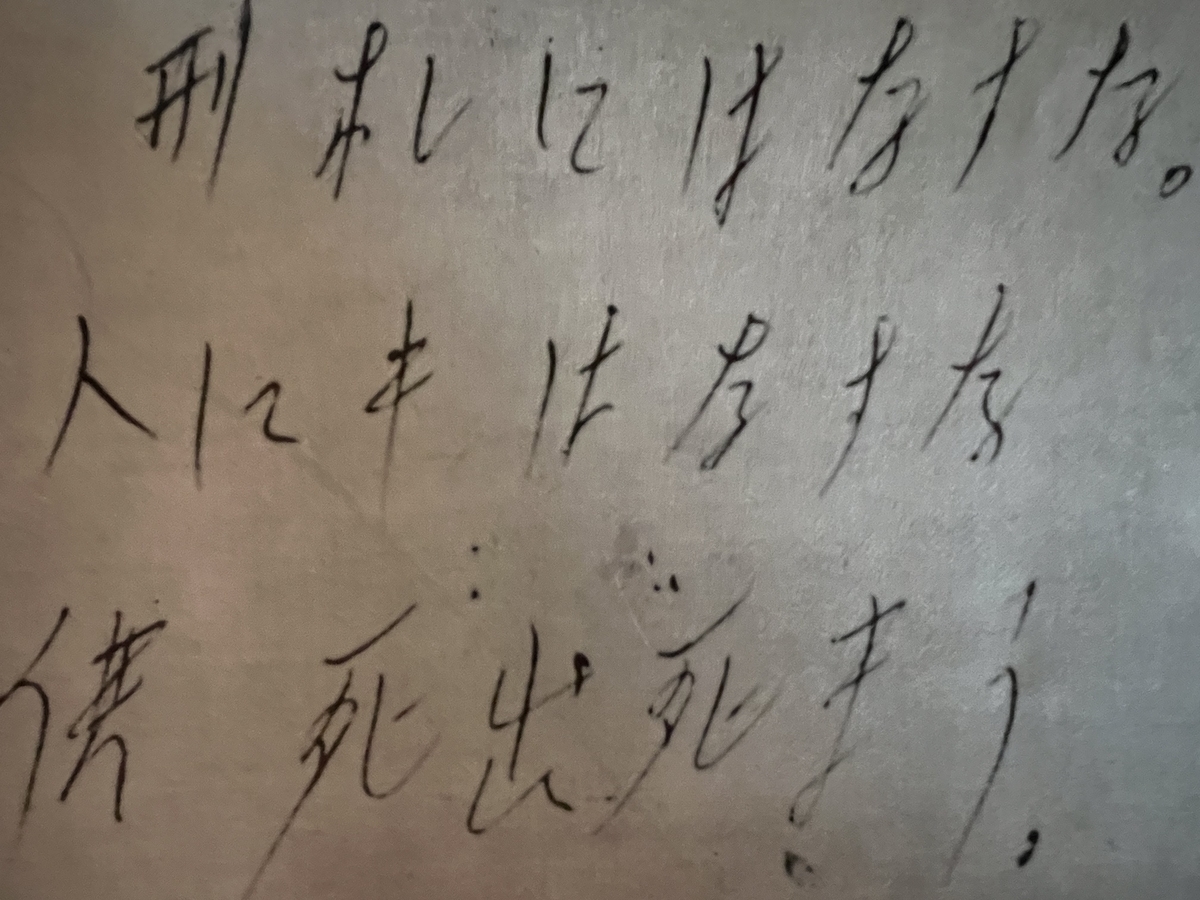 刑札にはなすな。
人にもはなすな
供 死出死ます。